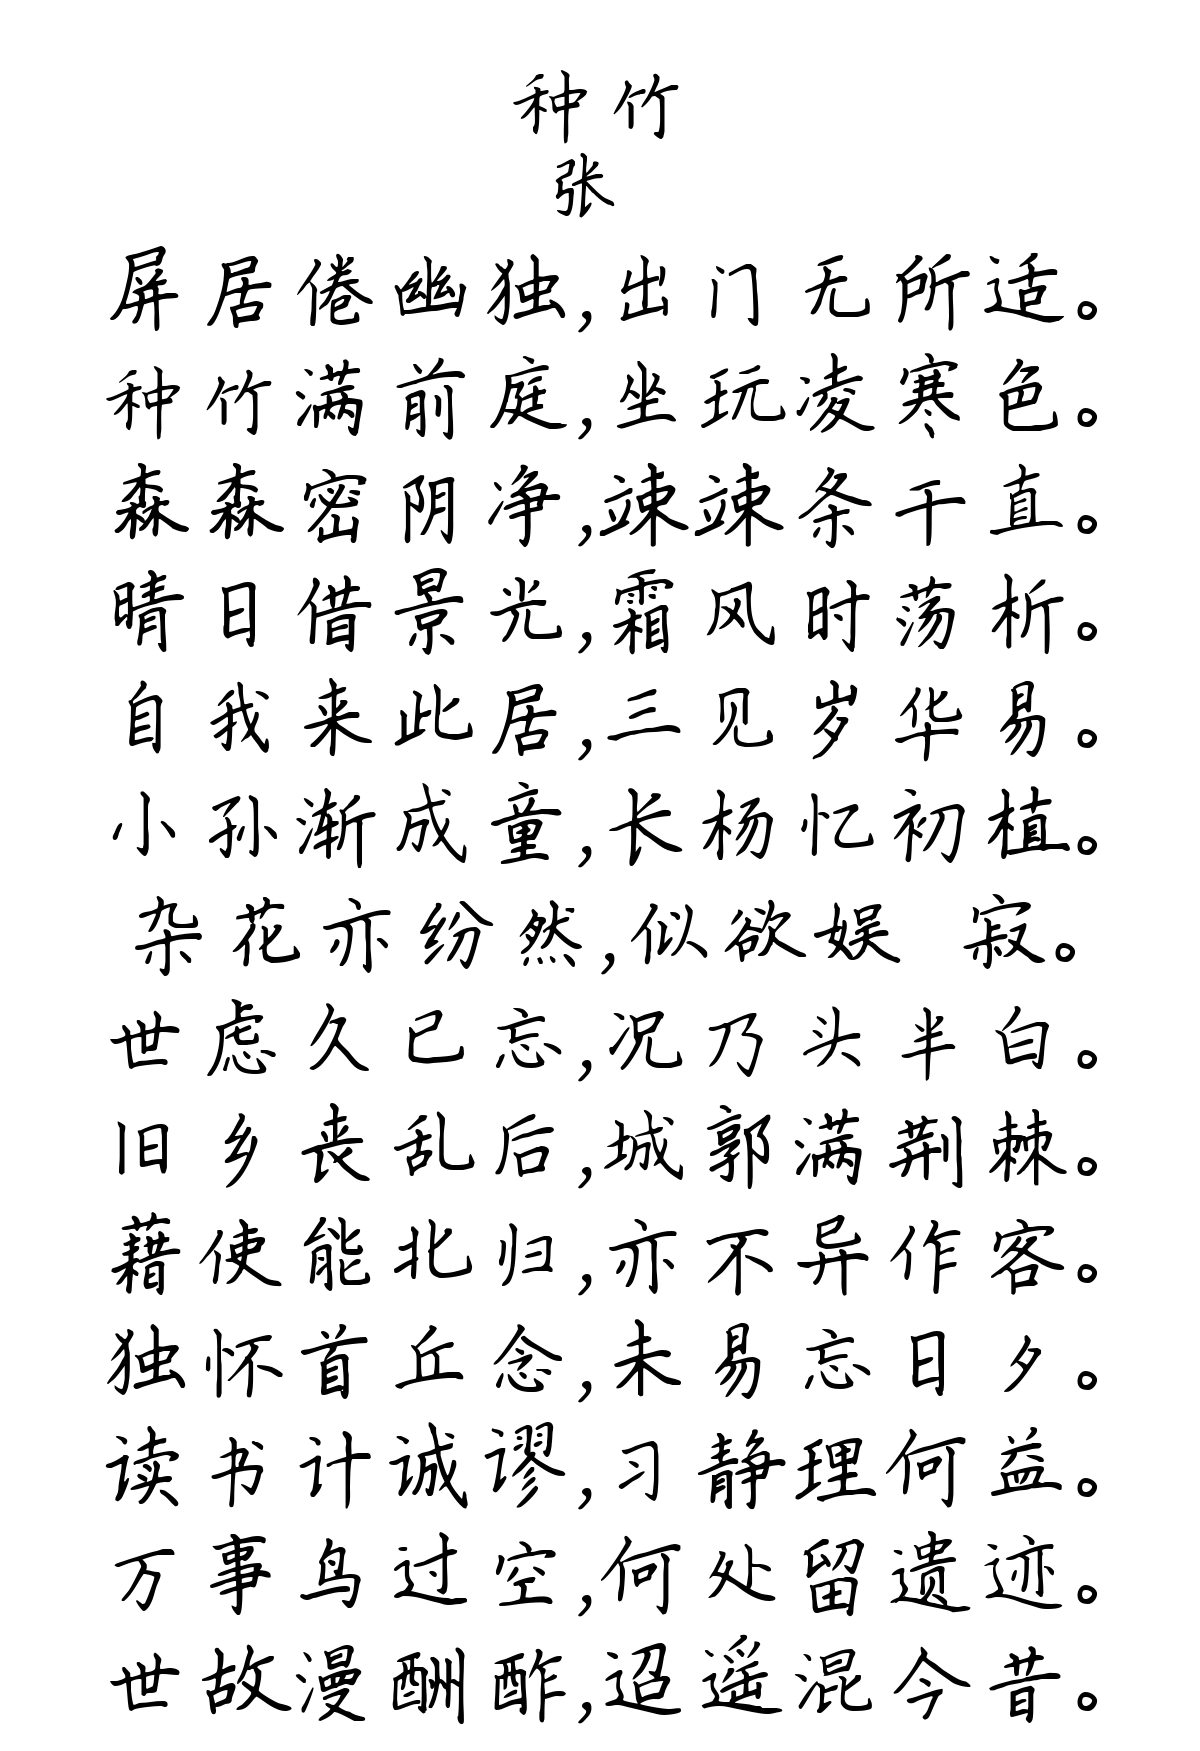 种竹
张
屏居倦幽独,出门无所适。
种竹满前庭,坐玩凌寒色。
森森密阴净,竦竦条干直。
晴日借景光,霜风时荡析。
自我来此居,三见岁华易。
小孙渐成童,长杨忆初植。
杂花亦纷然,似欲娱 寂。
世虑久已忘,况乃头半白。
旧乡丧乱后,城郭满荆棘。
藉使能北归,亦不异作客。
独怀首丘念,未易忘日夕。
读书计诚谬,习静理何益。
万事鸟过空,何处留遗迹。
世故漫酬酢,迢遥混今昔。